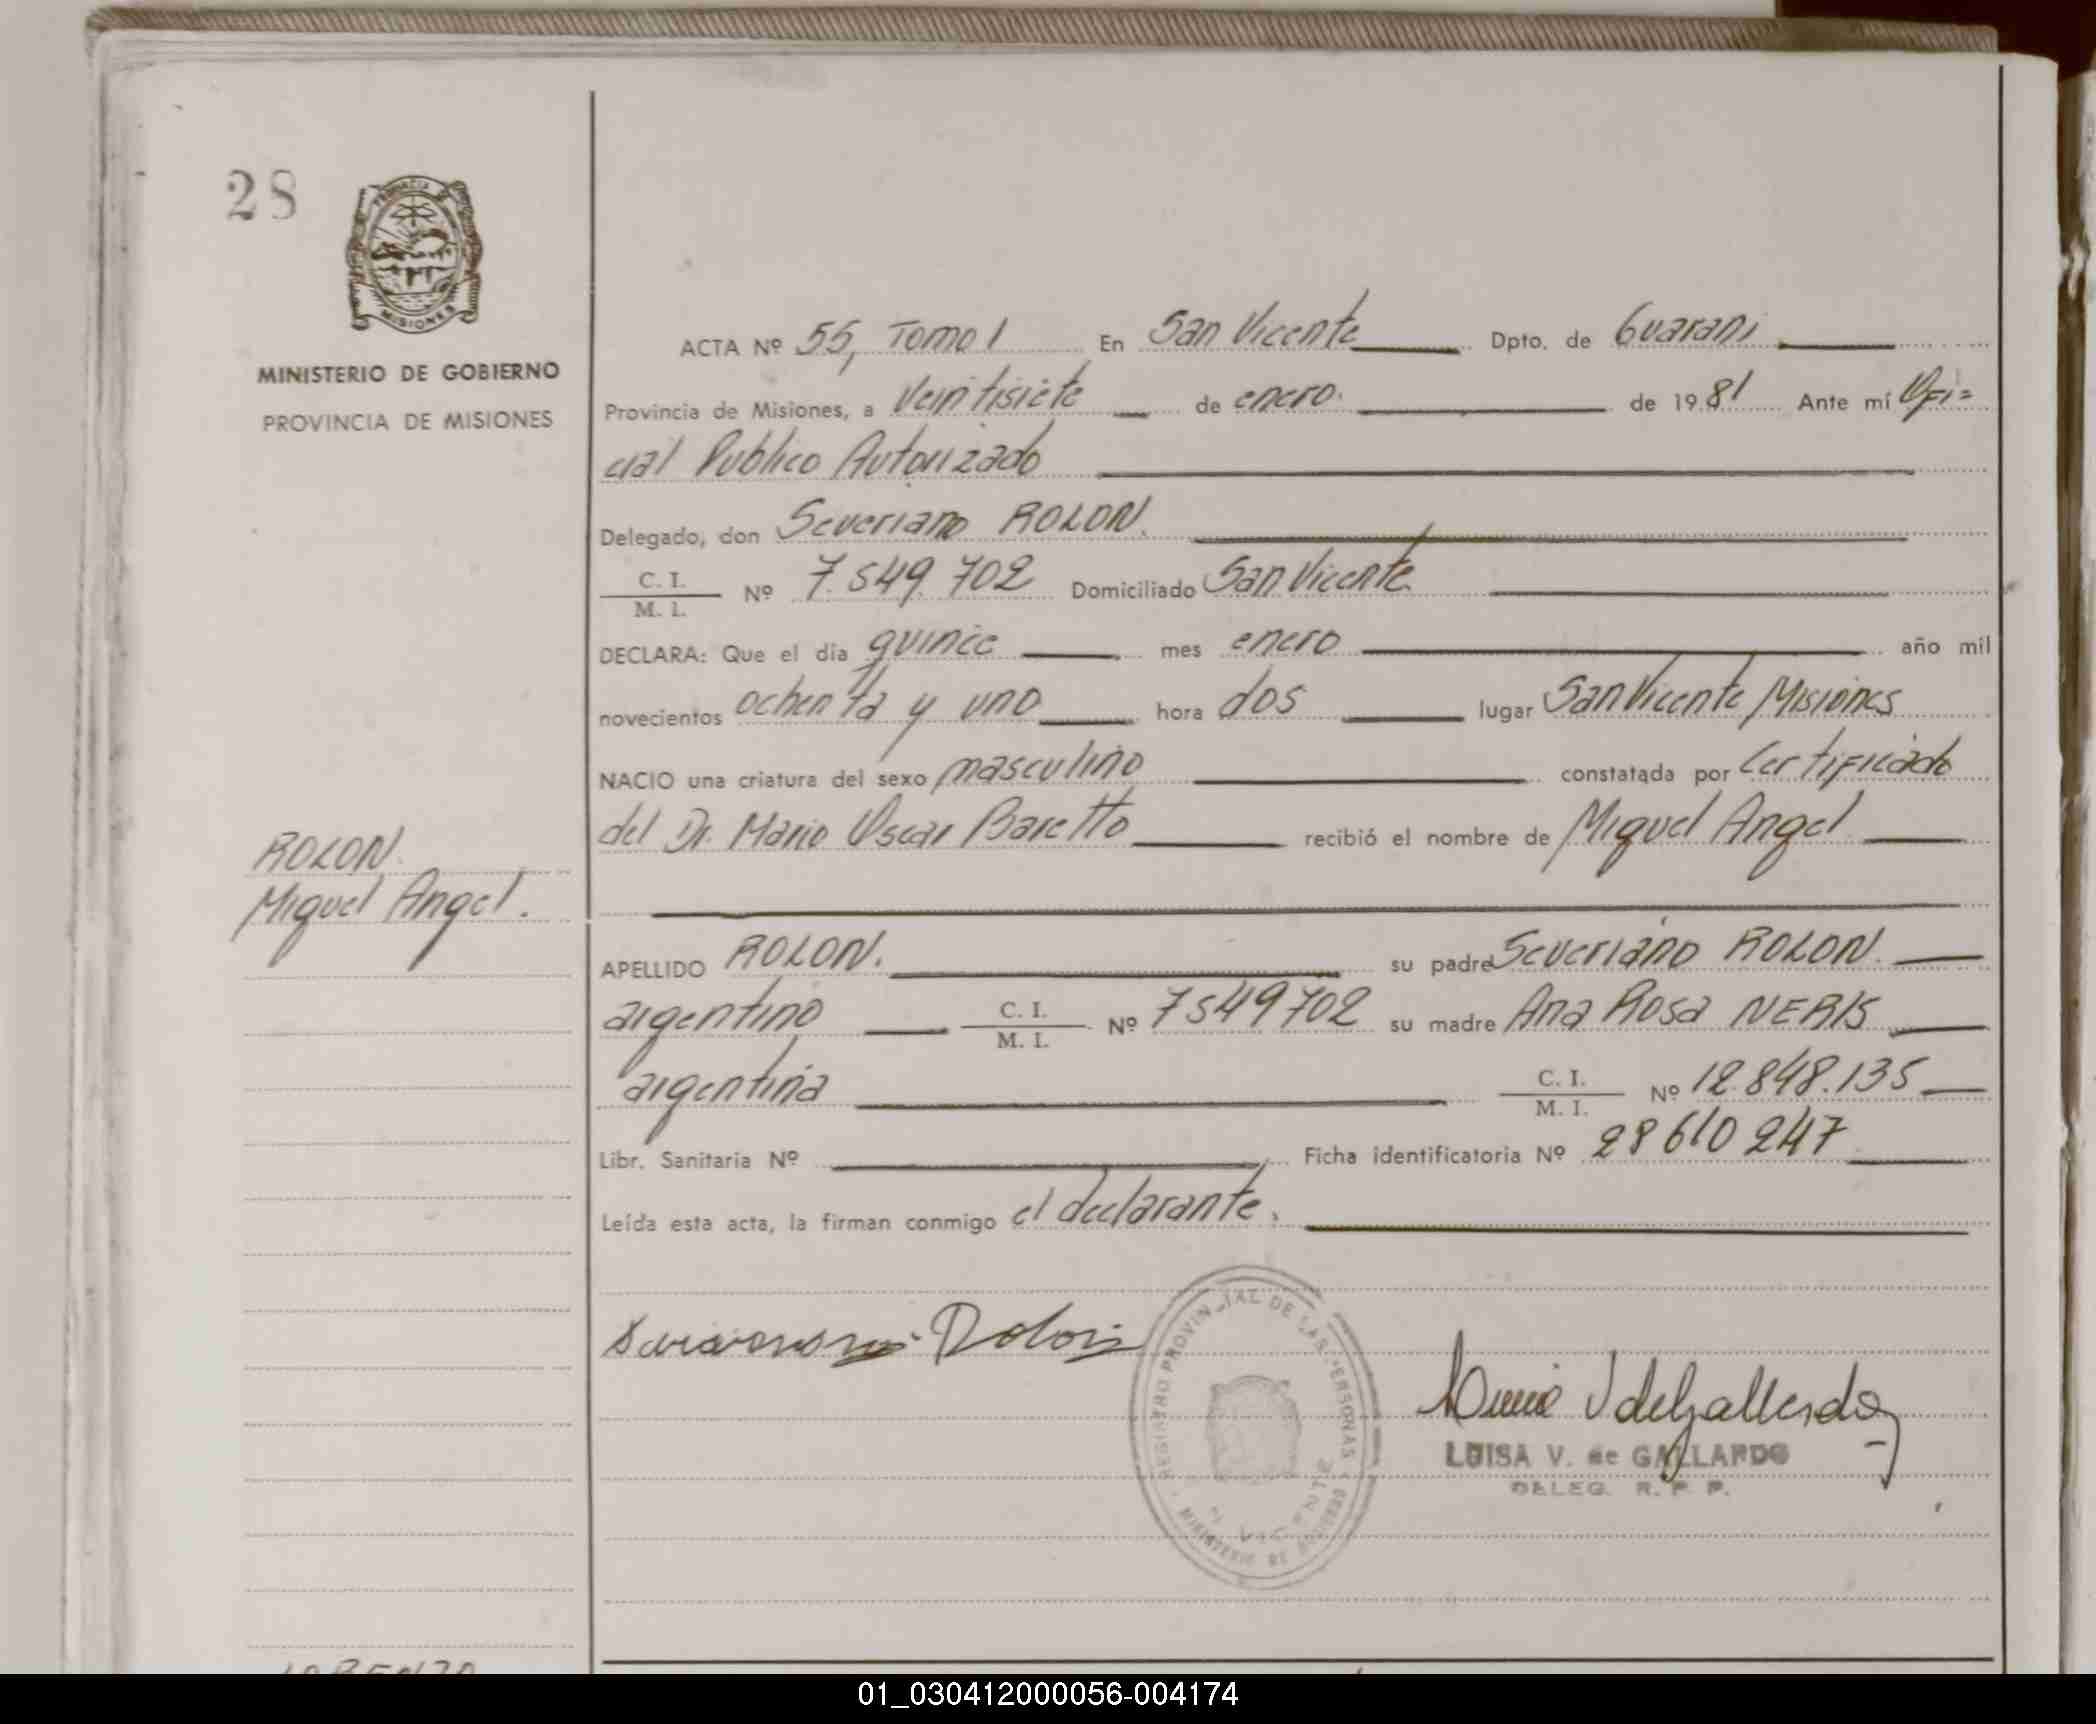 28
PROVINCIA DE
MISIONES
MINISTERIO DE GOBIERNO
PROVINCIA DE MISIONES
ROLON
Miguel Angel.
ACTA Nº 55, Tomo 1 En San Vicente Dpto. de Guarani
Provincia de Misiones, a Veintisiete de enero. de 1981 Ante mí Ofi=
cial Publico Autorizado
Delegado, don Severiano ROLON.
C. I.
M. I. Nº 7.549.702 Domiciliado San Vicente
DECLARA: Que el día quince mes enero año mil
novecientos ochenta y uno hora dos lugar San Vicente Misiones
NACIO una criatura del sexo masculino constatada por Certificado
del Dr. Mario Oscar Baretto recibió el nombre de Miguel Angel
APELLIDO ROLON. su padre Severiano ROLON.
argentino C. I.
M. I. Nº 7549702 su madre Ana Rosa NERIS
argentina C. I.
M. I. Nº 12.848.135
Libr. Sanitaria Nº Ficha identificatoria Nº 28610247
Leída esta acta, la firman conmigo el declarante.
Rolon
REGISTRO PROVINCIAL DE LAS PERSONAS
MINISTERIO DE GOBIERNO
S. VICENTE
V de Gallardo
LUISA V. de GALLARDO
DELEG. R. P. P.
01_030412000056-004174